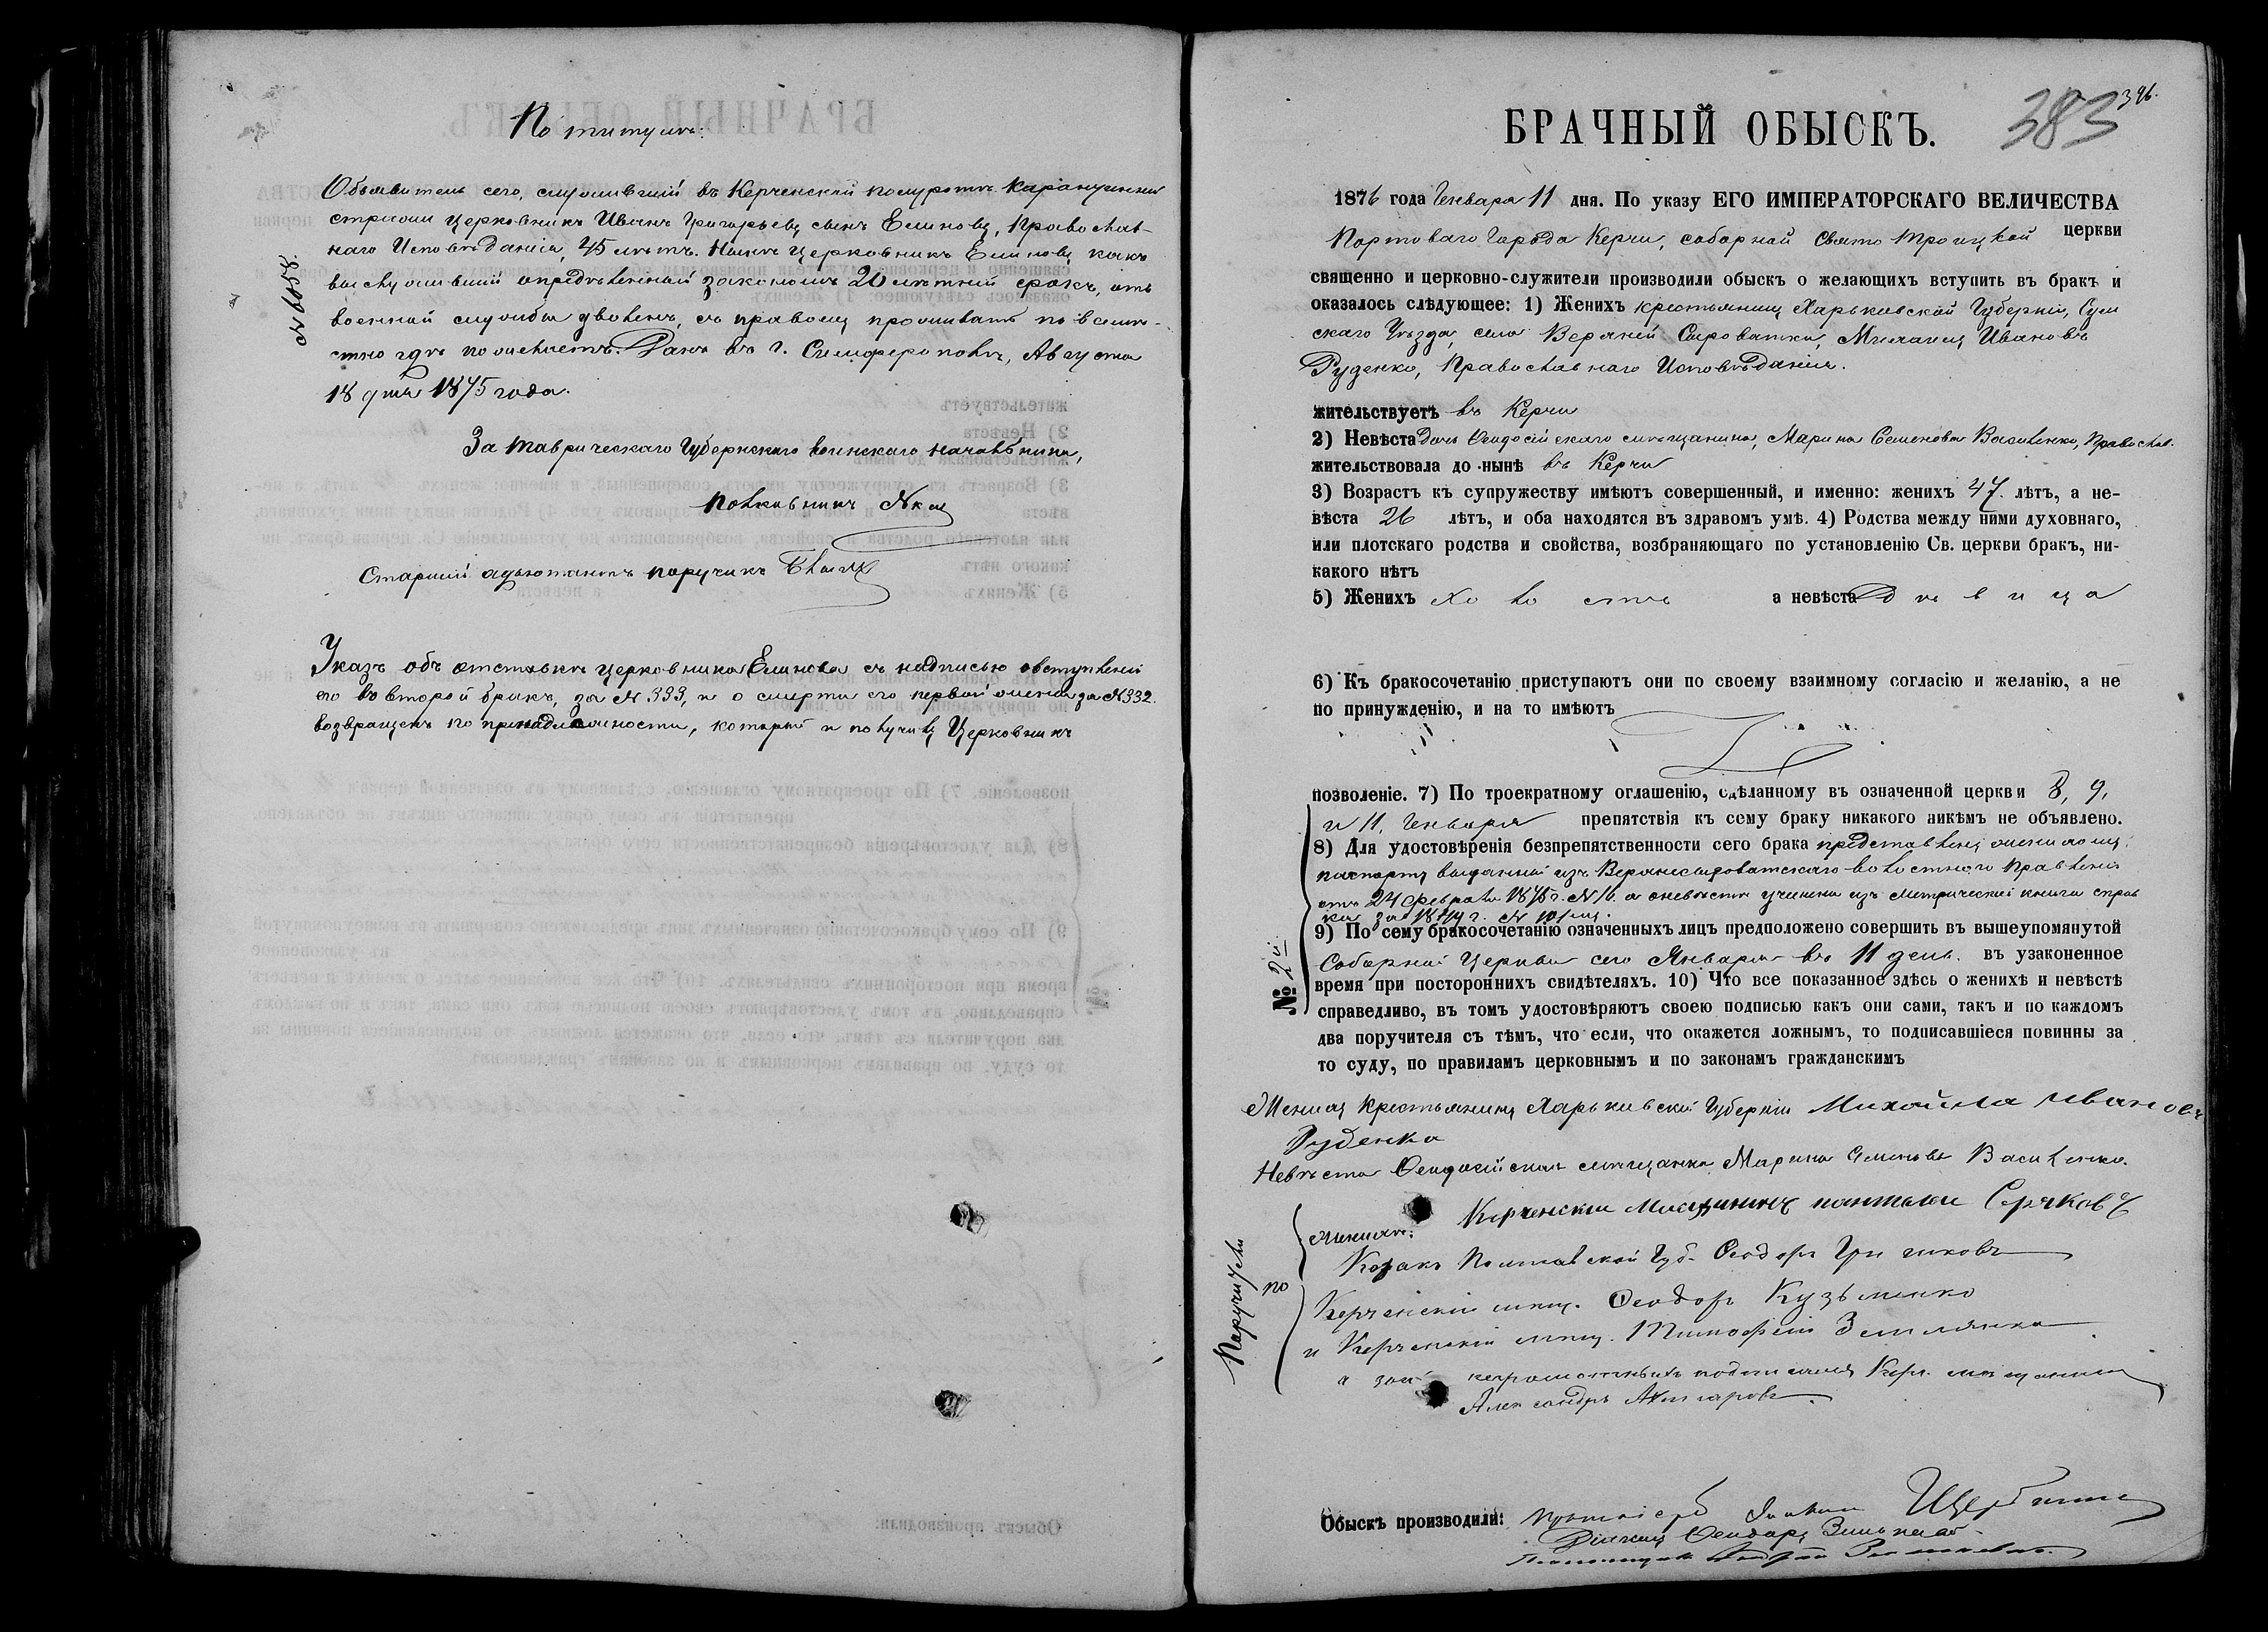 По титулѣ:
Объявитель сего, служившій въ Керченской полуротѣ Карантинной
стражи церковникъ Иванъ Григорьевъ сынъ Елиновъ, Православ-
наго Исповѣданія, 45 лѣтъ. Нынѣ церковникъ Елиновъ какъ
выслужившій опредѣленный закономъ 20 лѣтній срокъ, отъ
военной службы уволенъ, съ правомъ проживать по всемѣ-
стно гдѣ пожелаетъ. Данъ въ г. Симферополѣ, Августа
18 дня 1875 года.
№ 6658.
За Таврическаго Губернскаго воинскаго начальника,
Полковникъ
Старшій адъютантъ поручикъ
Указъ объ отставкѣ церковника Елинова съ надписью о вступленіи
его во второй бракъ, за № 333, и о смерти его первой жены за № 332.
возвращенъ по принадлежности, который и получилъ Церковникъ
383 396.
БРАЧНЫЙ ОБЫСКЪ.
1876 года Генваря 11 дня. По указу ЕГО ИМПЕРАТОРСКАГО ВЕЛИЧЕСТВА
Портоваго Города Керчи, соборной Свято Троицкой церкви
священно и церковно-служители производили обыскъ о желающихъ вступить въ бракъ и
оказалось слѣдующее: 1) Женихъ крестьянинъ Харьковской Губерніи, Сум
скаго Уѣзда, села Верхней Сыроватки, Михаилъ Ивановъ
Руденко, Православнаго Исповѣданія.
жительствуетъ въ Керчи
2) Невѣста Дочь Ѳеодосійскаго мѣщанина, Марина Семенова Василенко, Правосл.
жительствовала до нынѣ въ Керчи
3) Возрастъ къ супружеству имѣютъ совершенный, и именно: женихъ 47. лѣтъ, а не-
вѣста 26 лѣтъ, и оба находятся въ здравомъ умѣ. 4) Родства между ними духовнаго,
или плотскаго родства и свойства, возбраняющаго по установленію Св. церкви бракъ, ни-
какого нѣтъ
5) Женихъ Холостъ а невѣста Дѣвица
6) Къ бракосочетанію приступаютъ они по своему взаимному согласію и желанію, а не
по принужденію, и на то имѣютъ
позволеніе. 7) По троекратному оглашенію, сдѣланному въ означенной церкви 8, 9,
и 11, Генваря препятствія къ сему браку никакого никѣмъ не объявлено.
8) Для удостовѣренія безпрепятственности сего брака представленъ женихомъ
паспортъ выданный изъ Верхнесыроватскаго волостнаго Правленія
отъ 24 февраля 1875 г. № 16. а о невѣстѣ учинена изъ метрической книги справ
ка за г. №
9) По сему бракосочетанію означенныхъ лицъ предположено совершить въ вышеупомянутой
Соборной Церкви сего Января въ 11 день. въ узаконенное
время при постороннихъ свидѣтеляхъ. 10) Что все показанное здѣсь о женихѣ и невѣстѣ
справедливо, въ томъ удостовѣряютъ своею подписью какъ они сами, такъ и по каждомъ
два поручителя съ тѣмъ, что если, что окажется ложнымъ, то подписавшіеся повинны за
то суду, по правиламъ церковнымъ и по законамъ гражданскимъ
№ 2й.
Женихъ Крестьянинъ Харьковской Губерніи Михайла Ивановъ
Руденко
Невѣста Ѳеодосійская мѣщанка Марина Семенова Василенко.
Поручители по
Женихѣ: Керченскии Мищининъ пантелеи Серяковъ
Козакъ Полтавской Губ. Ѳеодоръ Гриниковъ
Керченскій мѣщ. Ѳеодоръ Кузьменко
и Керченскій мѣщ. Тимофей Землянка
а за неграмотныхъ подписался Керч. мѣщанинъ
Александръ
Обыскъ производили: Протоіерей Іоаннъ Щербина
Діаконъ Ѳеодоръ